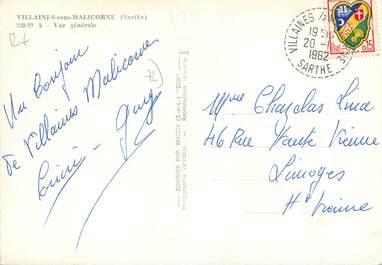 VILLAINES-sous-MALICORNE (Sarthe)
220-22 A - Vue générale
Un bonjour
de Villaines Malicorne
COMBIER IMP. MACON (S.-et-L.) "CIM"
Photographie Véritable - Reproduction interdite
VILLAINES
19
20 -
1962
SARTHE
Mme Chazelas Lina
46 Rue Haute Vienne
Limoges
Hte Vienne